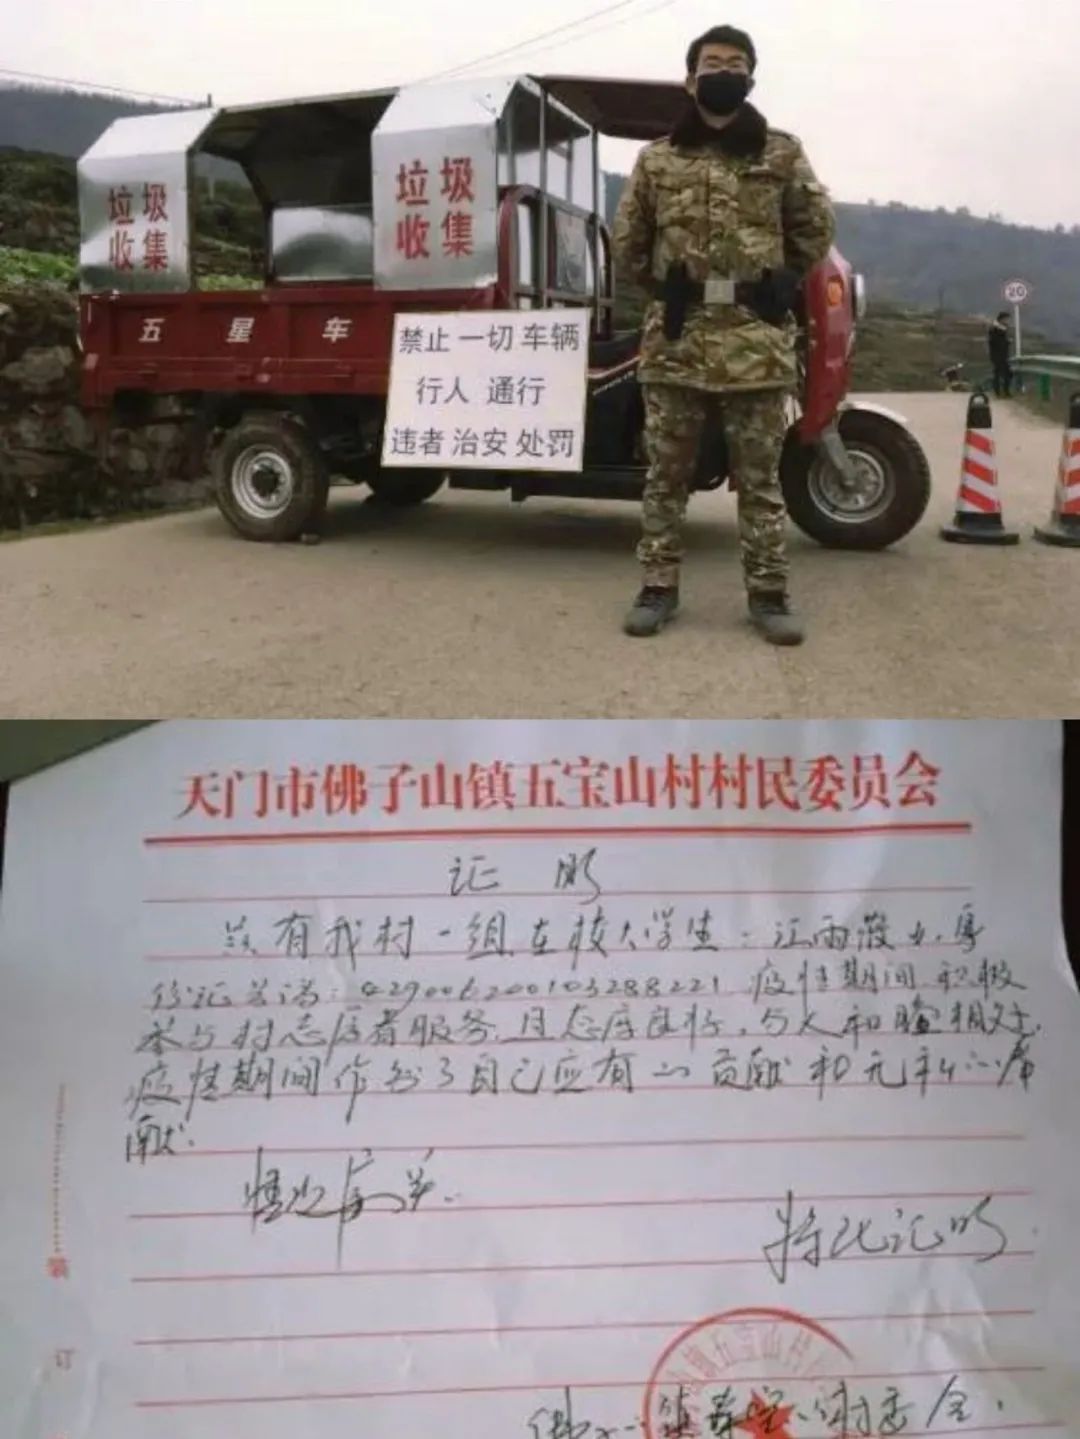 垃圾
收集
垃圾
收集
五星车
20
禁止一切车辆
行人 通行
违者治安处罚
天门市佛子山镇五宝山村村民委员会
证明
兹有我村一组在校大学生:江雨
疫情期间积极
参与村志愿者服务,且态度良好,与人和睦相处,
疫情期间作出了自己应有的贡献和无私的奉
献.
情况属实.
特此证明
镇五宝山村
装
订